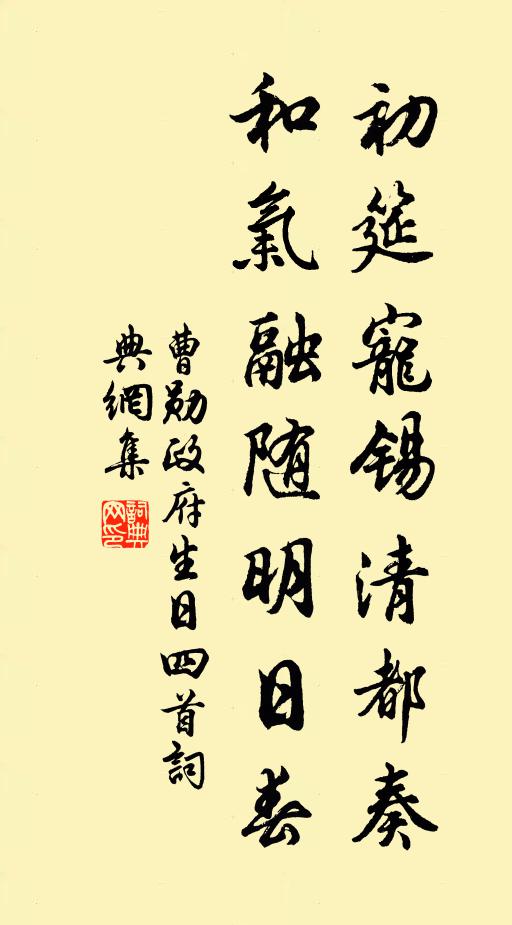 初筵寵錫清都奏
和氣融随明日春
曹勛政府生日四首詞
典網集
詞典
网印